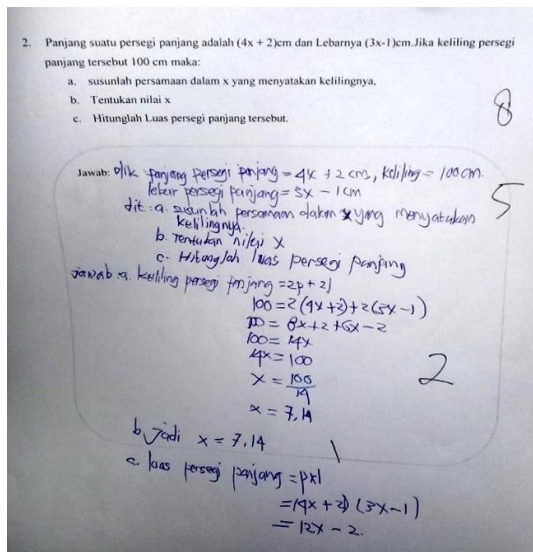 2. Panjang suatu persegi panjang adalah (4x + 2)cm dan Lebarnya (3x-1)cm.Jika keliling persegi
panjang tersebut 100 cm maka:
a. susunlah persamaan dalam x yang menyatakan kelilingnya,
b. Tentukan nilai x
c. Hitunglah Luas persegi panjang tersebut.
8
Jawab: dik panjang persegi panjang = 4x + 2 cm, keliling = 100 cm.
lebar persegi panjang = 3x - 1 cm
5
dit : a. susunlah persamaan dalam x yang menyatakan
kelilingnya.
b. Tentukan nilai x
c. Hitunglah luas persegi panjang
jawab a. keliling persegi panjang = 2p + 2l
100 = 2 (4x + 2) + 2 (3x - 1)
100 = 8x + 2 + 6x - 2
100 = 14x
14x = 100
2
x = 100/14
x = 7,14
b. jadi x = 7,14
1
c. luas persegi panjang = p x l
= (4x + 2) (3x - 1)
= 12x - 2.